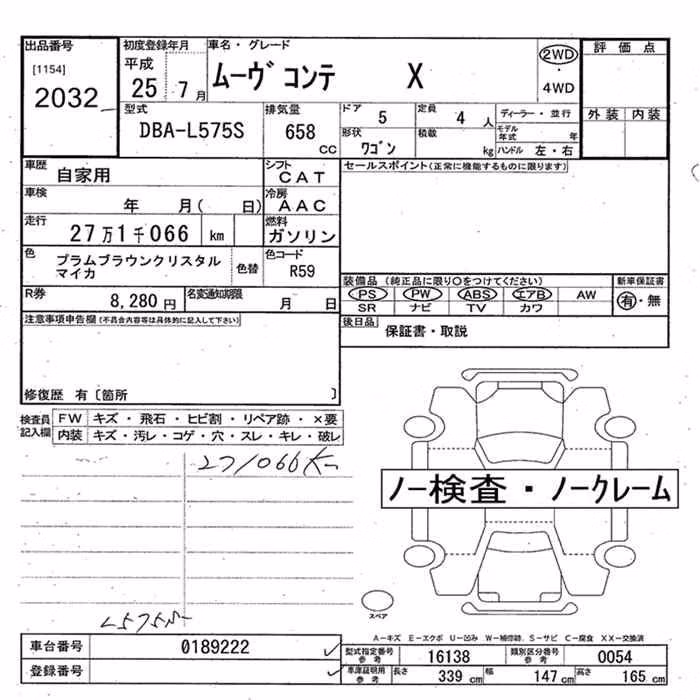 出品番号 初度登録年月 車名・グレード 2WD 評価点
[1154] 平成 ムーヴ コンテ X ・
2032 25 7月 4WD
型式 排気量 ドア 5 定員 4 人 ディーラー・並行 外装 内装
DBA-L575S 658 cc 形状 ワゴン 積載 kg モデル年式 年
ハンドル 左・右
車歴 自家用 シフト CAT セールスポイント(正常に機能するものに限ります)
車検 年 月( 日) 冷房 AAC
走行 27万1千066 km 燃料 ガソリン
色 プラムブラウンクリスタル 色替 色コード R59
マイカ
装備品 (純正品に限り○をつけてください) 新車保証書
R券 8,280円 名変通知期限 月 日 PS PW ABS エアB AW 有・無
SR ナビ TV カワ
注意事項申告欄(不具合内容等は具体的に記入して下さい) 後日品 保証書・取説
修復歴 有〔箇所 〕
検査員 FW キズ・飛石・ヒビ割・リペア跡・×要
記入欄 内装 キズ・汚レ・コゲ・穴・スレ・キレ・破レ
271066K
ノー検査・ノークレーム
スペア
L575S
A-キズ E-エクボ U-凹み W-補修跡 S-サビ C-腐食 XX-交換済
車台番号 0189222 型式指定番号 参考 16138 類別区分番号 参考 0054
登録番号 車庫証明用 参考 長さ 339 cm 幅 147 cm 高さ 165 cm